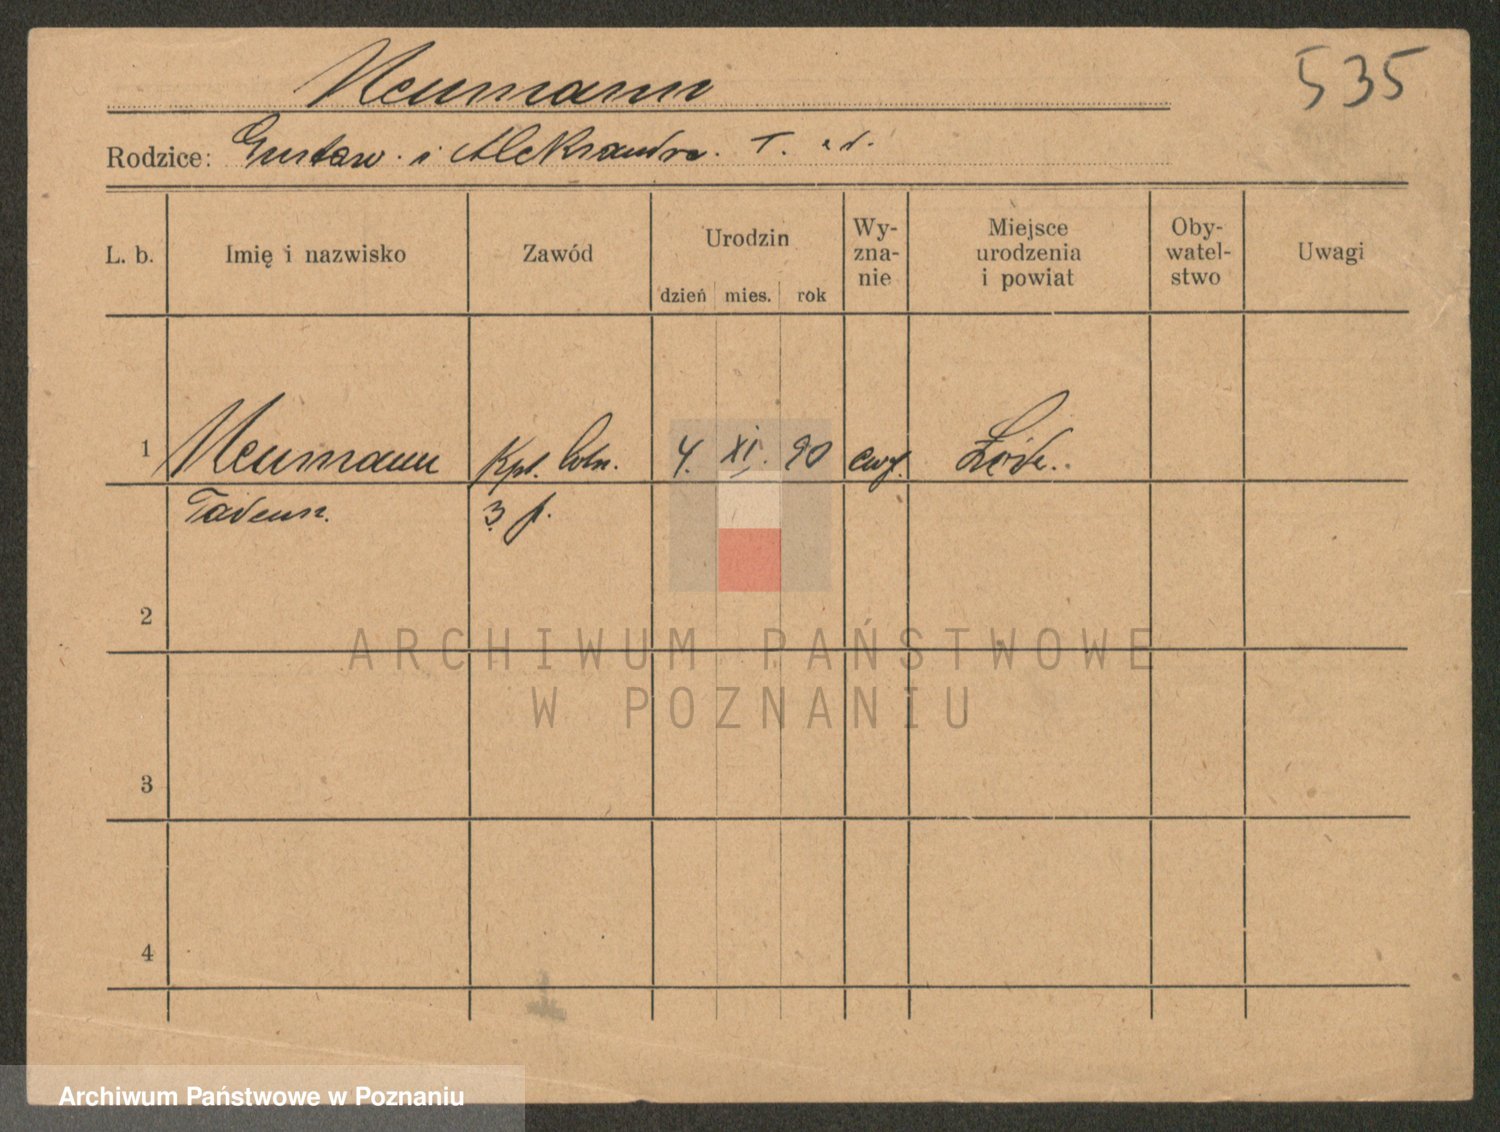 Neumann
535
Rodzice: Gustaw i Aleksandra
L. b. Imię i nazwisko Zawód Urodzin Wy-
zna-
nie Miejsce
urodzenia
i powiat Oby-
watel-
stwo Uwagi
dzień mies. rok
1 Neumann Kpt. 4. XI. 90 ewg. Łódź.
Tadeusz. 3 p.
2
3
4
ARCHIWUM PAŃSTWOWE
W POZNANIU
Archiwum Państwowe w Poznaniu